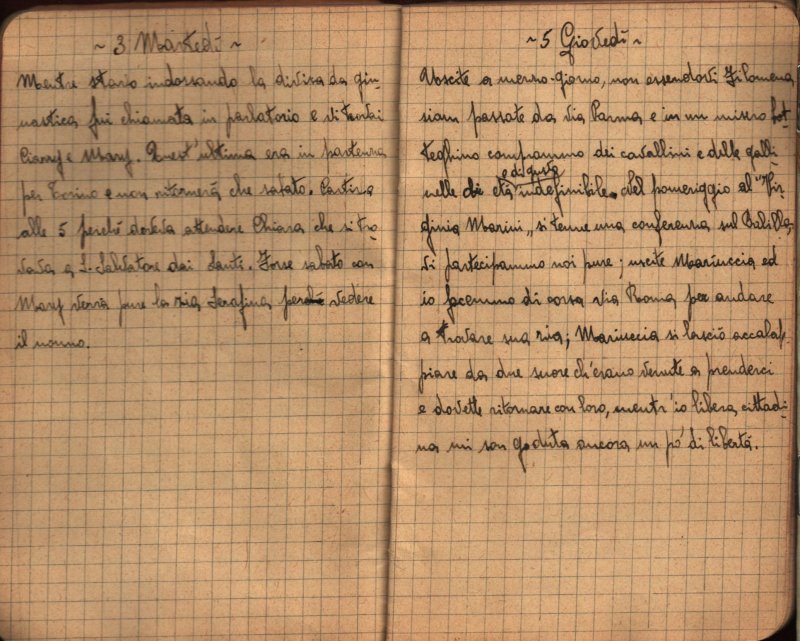 ~ 3 Martedì ~
Mentre stavo indossando la divisa da gin-
nastica fui chiamata in parlatorio e vi trovai
Cianzy e Mary. Quest'ultima era in partenza
per Torino e non ritornerà che sabato. Partirono
alle 5 perché doveva attendere Chiara che si tro-
vava a S. Salvatore dai Santi. Forse sabato con
Mary verrà pure la zia Serafina per vedere
il nonno.
~ 5 Giovedì ~
Uscite a mezzo-giorno, non essendovi Filomena
siam passate da via Parma e in un misero bot
teghino comprammo dei cavallini e delle galli
e di gusto
nelle di età indefinibile. Nel pomeriggio al "Vir
ginia Marini" si tenne una conferenza sul Balilla,
vi partecipammo noi pure; uscite Mariuccia ed
io facemmo di corsa via Roma per andare
a trovare sua zia; Mariuccia si lasciò accalap-
piare da due suore ch'erano venute a prenderci
e dovette ritornare con loro, mentr'io libera cittadi-
na mi son goduta ancora un pò di libertà.